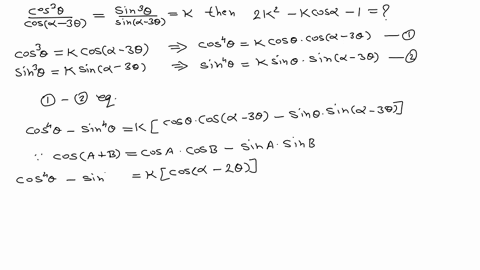 cos³θ/cos(α-3θ) = sin³θ/sin(α-3θ) = K then 2K² - Kcosα - 1 = ?
cos³θ = K cos(α-3θ) ⇒ cos⁴θ = K cosθ·cos(α-3θ) —①
sin³θ = K sin(α-3θ) ⇒ sin⁴θ = K sinθ·sin(α-3θ) —②
① - ② eq.
cos⁴θ - sin⁴θ = K[cosθ·cos(α-3θ) - sinθ·sin(α-3θ)]
∵ cos(A+B) = cosA·cosB - sinA·sinB
cos⁴θ - sin = K[cos(α-2θ)]